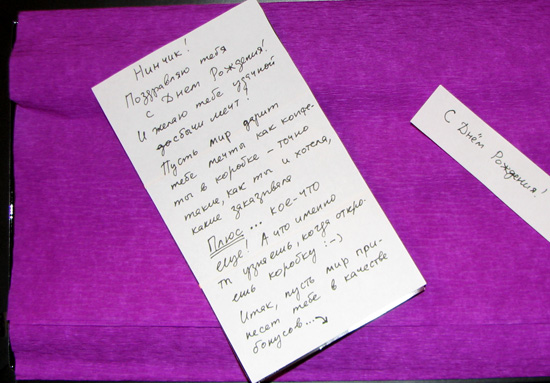 Нинчик!
Поздравляю тебя
с Днем Рождения!
И желаю тебе удачной
досбычи мечт!
Пусть мир дарит
тебе мечта как конфе-
ты в коробке – точно
такие, как ты и хотела,
какие заказывала
Плюс ... кое-что
еще! А что именно
ты узнаешь, когда откро-
ешь коробку :-)
Итак, пусть мир при-
несет тебе в качестве
бонусов...
С Днём Рождения!